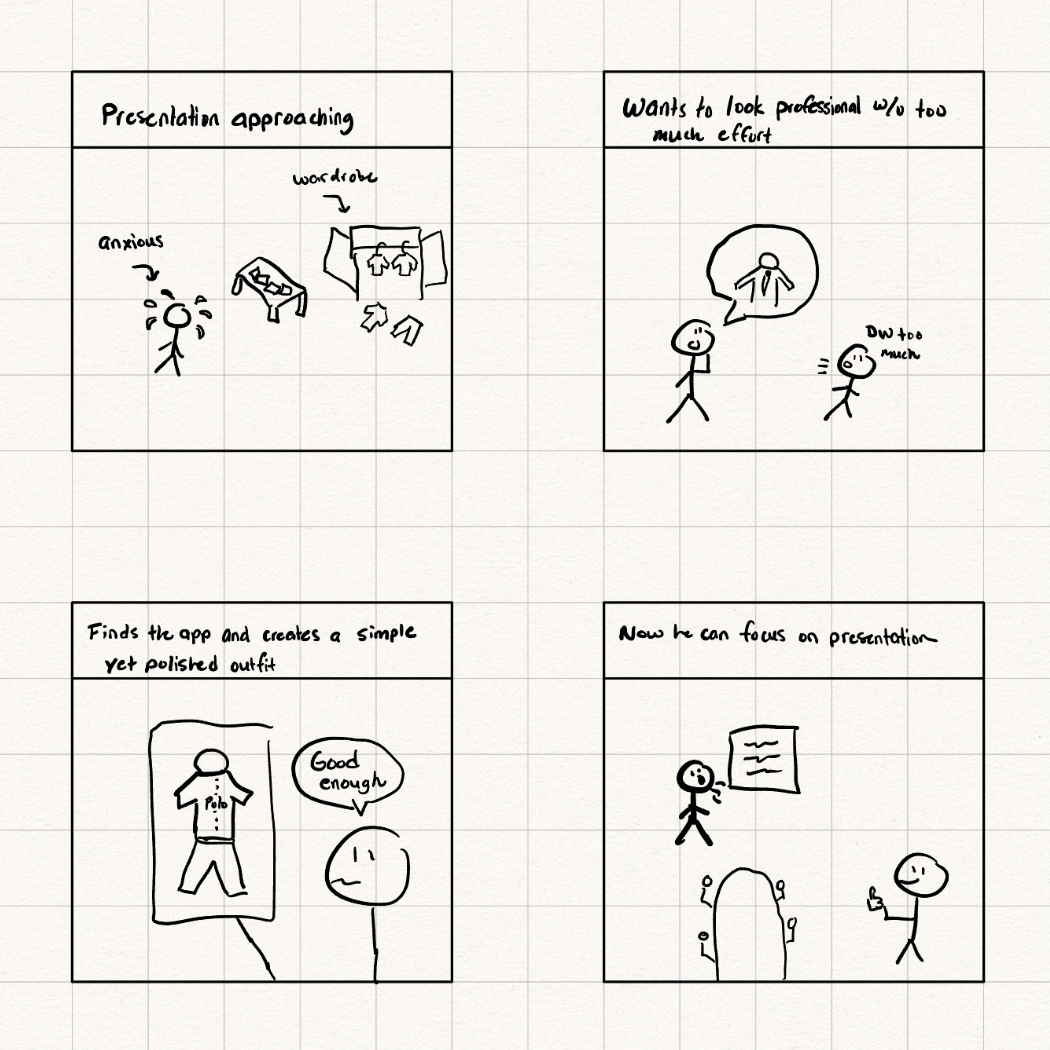 Presentation approaching
wardrobe
anxious
Wants to look professional w/o too
much effort
DW too
much
Finds the app and creates a simple
yet polished outfit
Polo
Good
enough
Now he can focus on presentation